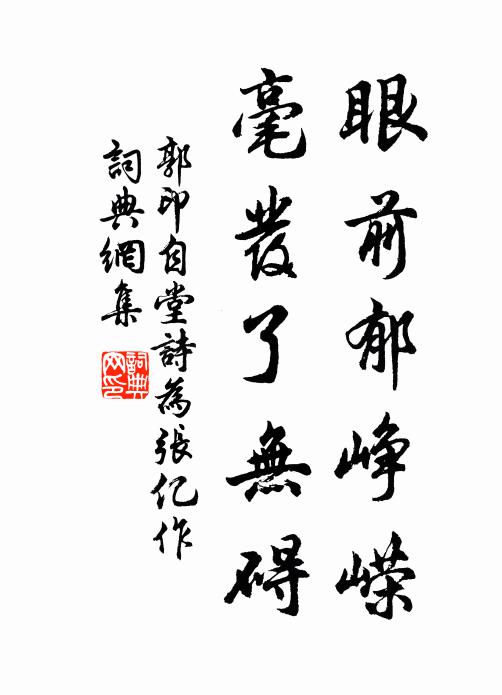 眼前郁峥嵘
毫發了無碍
郭印自堂詩為張仡作
詞典網集
詞典網印